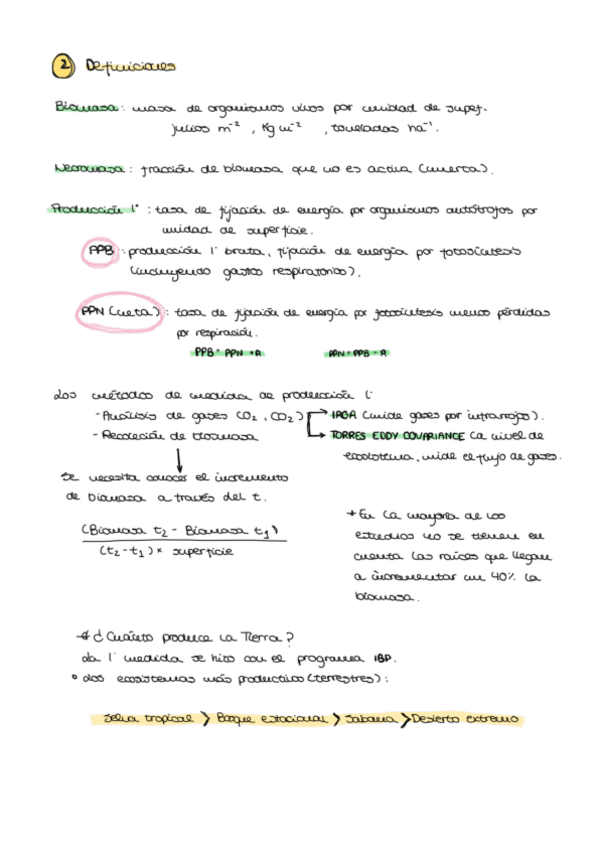 2 Definiciones
Biomasa: masa de organismos vivos por unidad de supef.
julios m⁻², Kg m⁻², toneladas ha⁻¹.
Necromasa: fracción de biomasa que no es activa (muerta).
Producción 1ª: tasa de fijación de energía por organismos autótrofos por
unidad de superficie.
PPB: producción 1ª bruta, fijación de energía por fotosíntesis
(incluyendo gastos respiratorios).
PPN (neta): tasa de fijación de energía por fotosíntesis menos pérdidas
por respiración.
PPB = PPN + R PPN = PPB - R
Los métodos de medida de producción 1ª
- Análisis de gases CO2, CO2) IRGA (mide gases por infrarrojos).
- Recolección de biomasa TORRES EDDY COVARIANCE (a nivel de
ecosistema, mide el flujo de gases.
Se necesita conocer el incremento
de biomasa a través del t.
(Biomasa t2 - Biomasa t1)
(t2 - t1) × superficie
* En la mayoría de los
estudios no se tienen en
cuenta las raíces que llegan
a incrementar un 40% la
biomasa.
¿Cuánto produce la Tierra?
La 1ª medida se hizo con el programa IBP.
Los ecosistemas más productivos (terrestres):
Selva tropical > Bosque estacional > Sabana > Desierto extremo